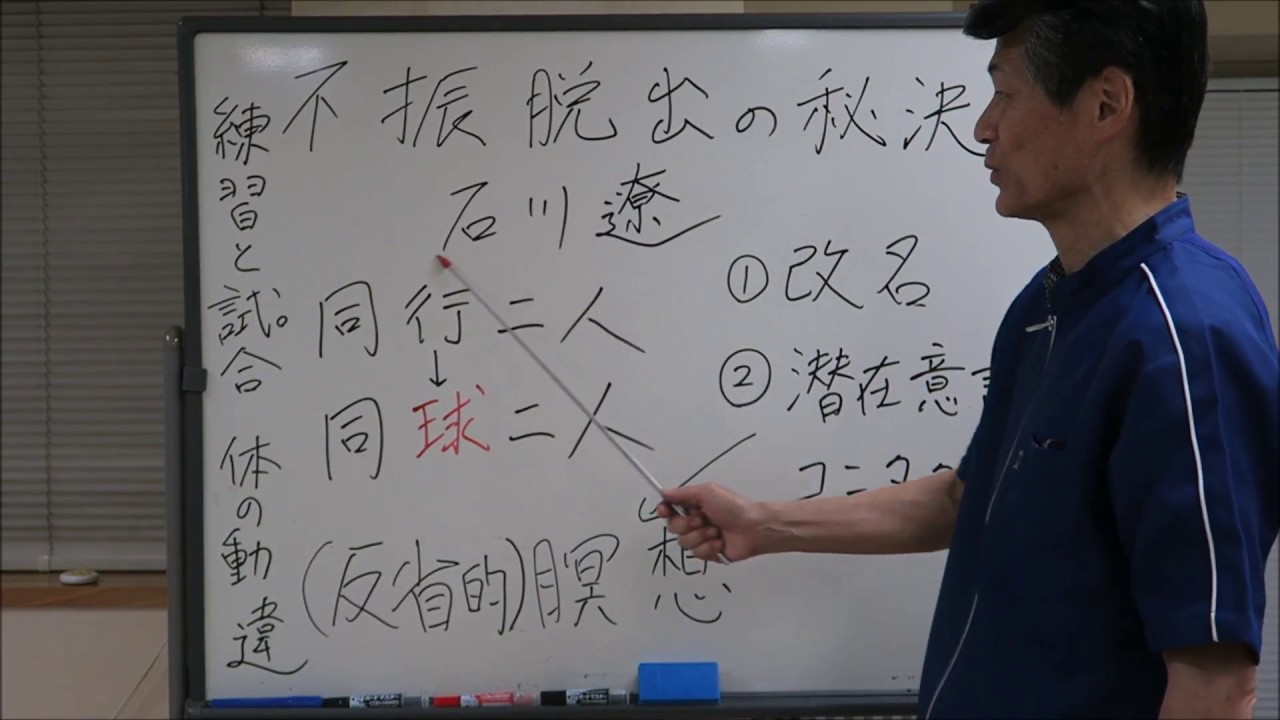 不振脱出の秘決
石川遼
同行二人
↓
同球二人
(反省的)瞑想
①改名
②潜在意
コニタ
練習と試合。体の動違